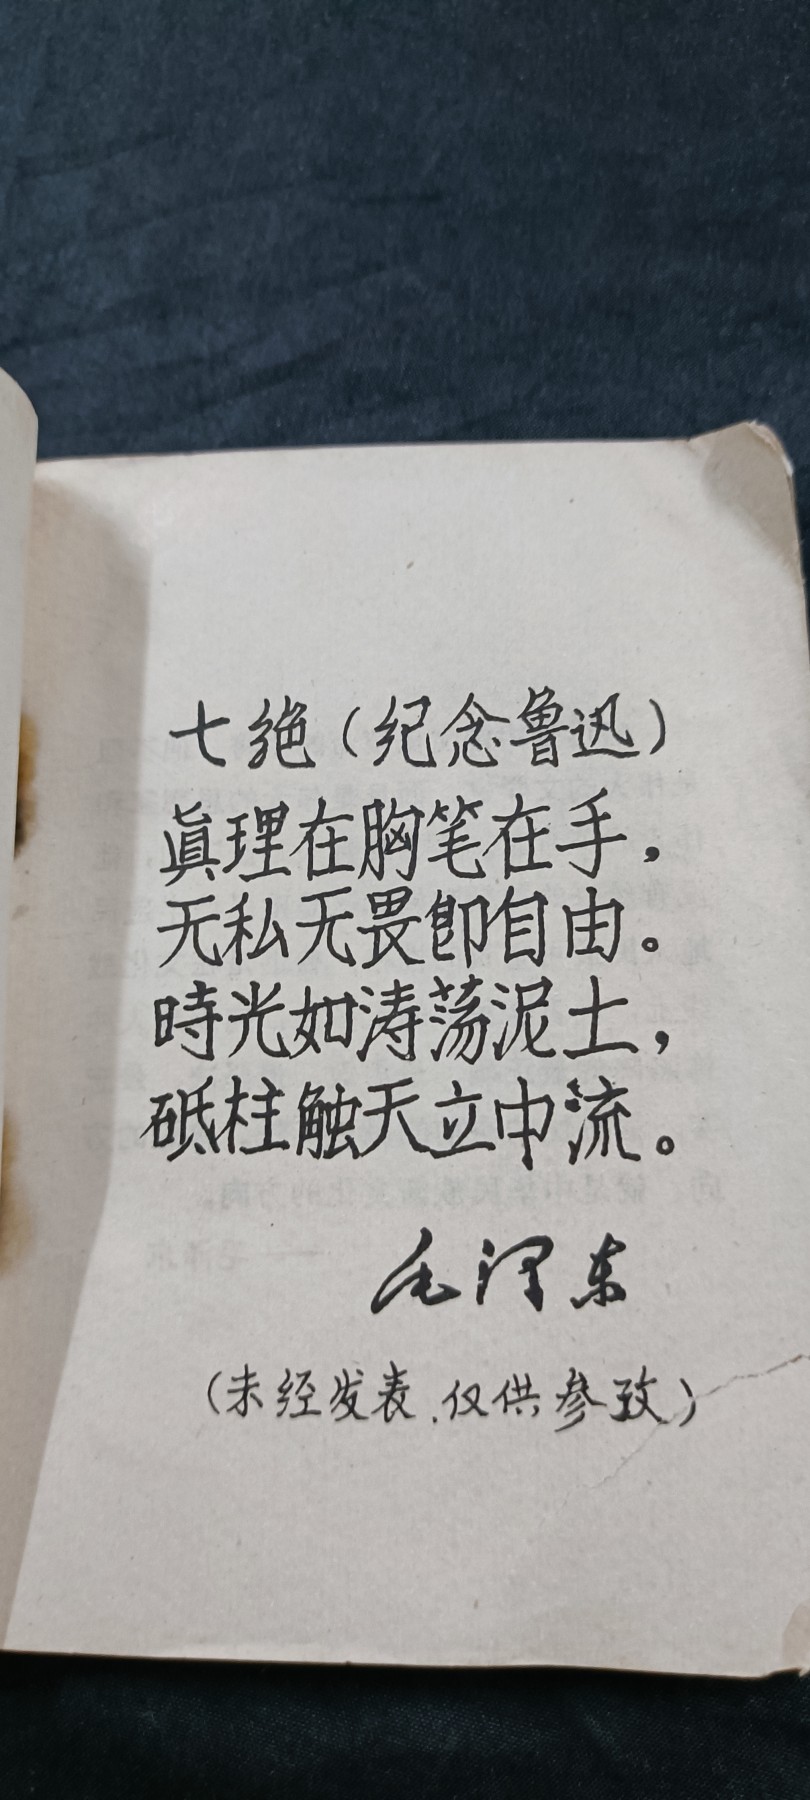 七绝（纪念鲁迅）
真理在胸笔在手，
无私无畏即自由。
時光如涛荡泥土，
砥柱触天立中流。
毛泽东
（未经发表．仅供参攷）